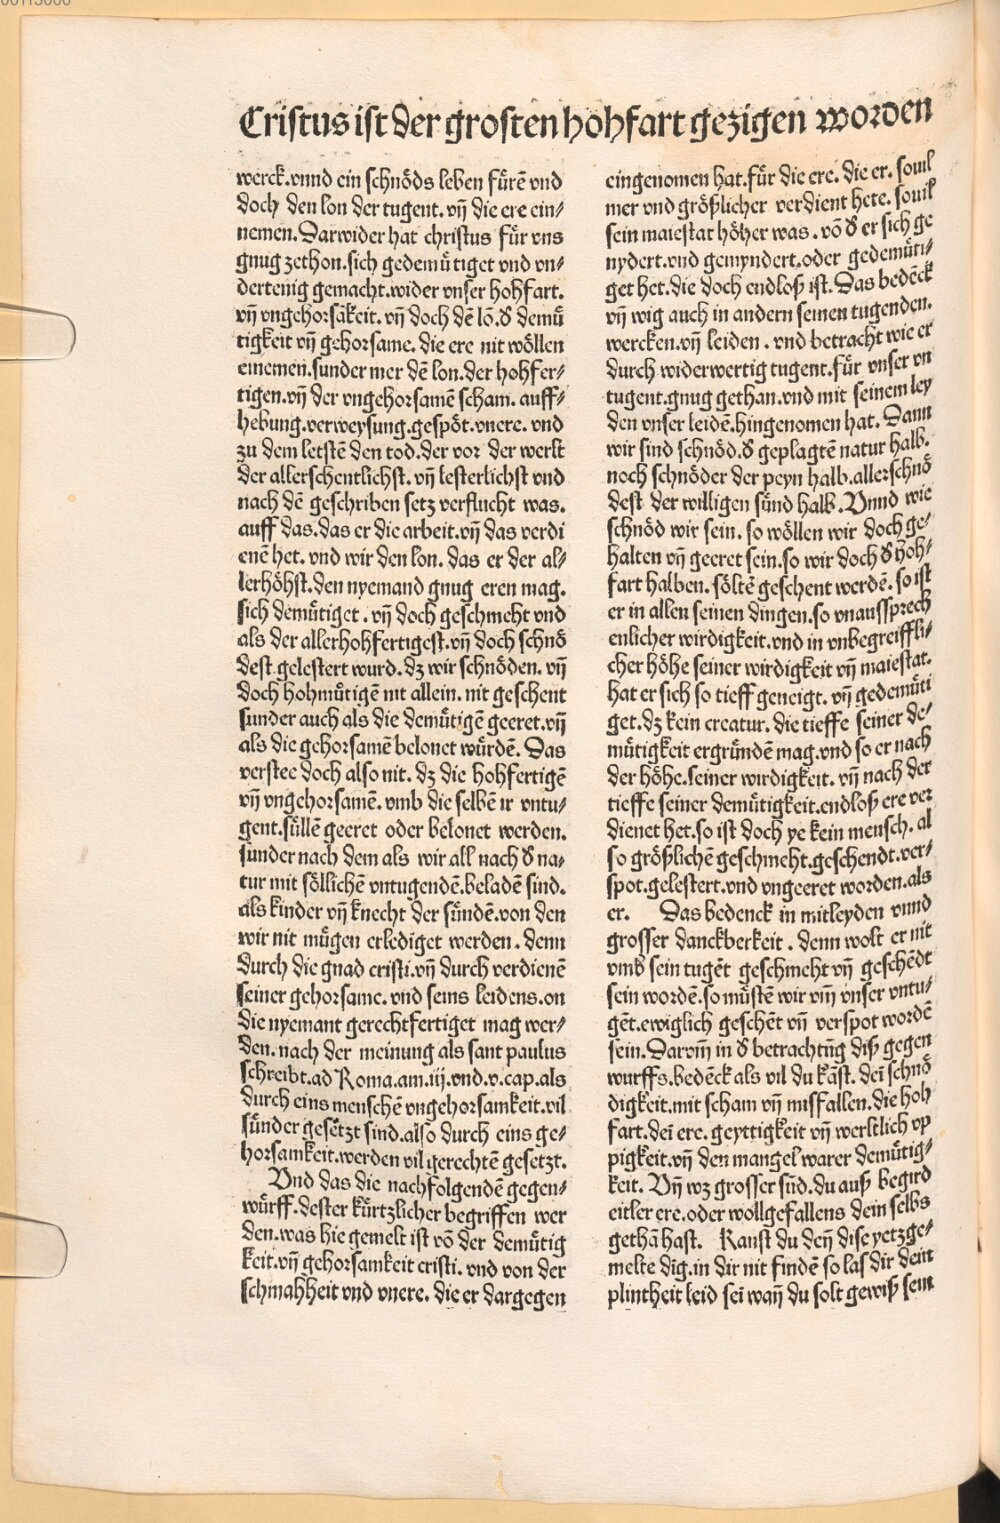 Cristus ist der grosten hohfart gezigen worden
werck.vnnd ein schnöds leben fürē vnd
doch den lon der tugent. vn̄ die ere ein⸗
nemen. Darwider hat christus für vns
gnug zethon.sich gedemütiget vnd vn⸗
dertenig gemacht.wider vnser hohfart.
vn̄ vngehorsākeit. vn̄ doch dē lō.d' demü
tigkeit vn̄ gehorsame. die ere nit wöllen
einemen.sunder mer dē lon.der hohfer⸗
tigen.vn̄ der vngehorsamē scham. auff⸗
hebung.verweysung.gespöt.vnere. vnd
zu dem letstē den tod.der vor der werlt
der allerschentlichst. vn̄ lesterlichst vnd
nach dē geschriben setz verflucht was.
auff das.das er die arbeit.vn̄ das verdi
enē het. vnd wir den lon. das er der al⸗
lerhöhst.den nyemand gnug eren mag.
sich demütiget . vn̄ doch geschmeht vnd
als der allerhohfertigest.vn̄ doch schnö
dest.gelestert wurd. dz wir schnöden. vn̄
doch hohmütigē nit allein. nit geschent
sunder auch als die demütigē geeret.vn̄
als die gehorsamē belonet würdē. Das
verstee doch also nit. dz die hohfertigē
vn̄ vngehorsamē. vmb die selbē ir vntu⸗
gent.süllē geeret oder belonet werden.
sunder nach dem als wir all nach d' na⸗
tur mit söllichē vntugendē.beladē sind.
als kinder vn̄ knecht der sündē.von den
wir nit mügen erlediget werden . denn
durch die gnad cristi.vn̄ durch verdienē
seiner gehorsame. vnd seins leidens.on
die nyemant gerechtfertiget mag wer⸗
den. nach der meinung als sant paulus
schreibt.ad Roma.am.iij.vnd.v.cap.als
durch eins menschē vngehorsamkeit.vil
sünder gesetzt sind.also durch eins ge⸗
horsamkeit.werden vil gerechtē gesetzt.
Vnd das die nachfolgendē gegen⸗
würff.dester kürtzlicher begriffen wer
den.was hie gemelt ist vō der demütig
keit.vn̄ gehorsamkeit cristi. vnd von der
schmahheit vnd vnere. die er dargegen
eingenomen hat.für die ere. die er. souil
mer vnd größlicher verdient hete. souil
sein maiestat höher was . vō d' er sich ge
nydert.vnd gemyndert.oder gedemüti⸗
get het.die doch endloß ist. Das bedēck
vn̄ wig auch in andern seinen tugenden.
wercken.vn̄ leiden . vnd betracht wie er
durch widerwertig tugent.für vnser vn
tugent.gnug gethan.vnd mit seinem ley
den vnser leidē.hingenomen hat. Dann
wir sind schnöd.d' geplagtē natur halb.
noch schnöder der peyn halb.allerschnö
dest der willigen sünd halb. Vnnd wie
schnöd wir sein. so wöllen wir doch ge⸗
halten vn̄ geeret sein.so wir doch d' hoh⸗
fart halben. söltē geschent werdē. so ist
er in allen seinen dingen.so vnaussprech
enlicher wirdigkeit.vnd in vnbegreiffli⸗
cher höhe seiner wirdigkeit vn̄ maiestat.
hat er sich so tieff geneigt. vn̄ gedemüti
get.dz kein creatur. die tieffe seiner de⸗
mütigkeit ergründē mag.vnd so er nach
der höhe.seiner wirdigkeit. vn̄ nach der
tieffe seiner demütigkeit.endloß ere ver
dienet het.so ist doch ye kein mensch. al
so größlichē geschmeht.geschendt.ver⸗
spot.gelestert.vnd vngeeret worden.als
er. Das bedenck in mitleyden vnnd
grosser danckberkeit . denn wolt er nit
vmb sein tugēt geschmeht vn̄ geschēdt
sein wordē.so müstē wir vm̄ vnser vntu⸗
gēt.ewiglich geschēt vn̄ verspot wordē
sein. Darvm̄ in d' betrachtn̄g diß gegen
wurffs.bedēck als vil du kāst. dei schnö
digkeit.mit scham vn̄ misfallen.die hoh
fart.dei ere. geyttigkeit vn̄ werltlich vp
pigkeit.vn̄ den mangel warer demütig⸗
keit. Vn̄ wz grosser sūd.du auß begird
eitler ere.oder wollgefallens dein selbs
gethā hast. Kanst du den̄ dise yetzge⸗
melte dīg.in dir nit findē so las dir dein
plintheit leid sei wan̄ du solt gewiß sein